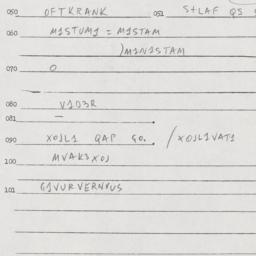 050 OFTKRANK 051 S+LAF QS
060 M1STUM1 = M1STAM
)M1N1STAM
070 O
080 V1D3R
081
090 XOJL1 QAP GO. / XOJL1VAT1
100 MVAK3XOJ
101 G1VURVERNVUS